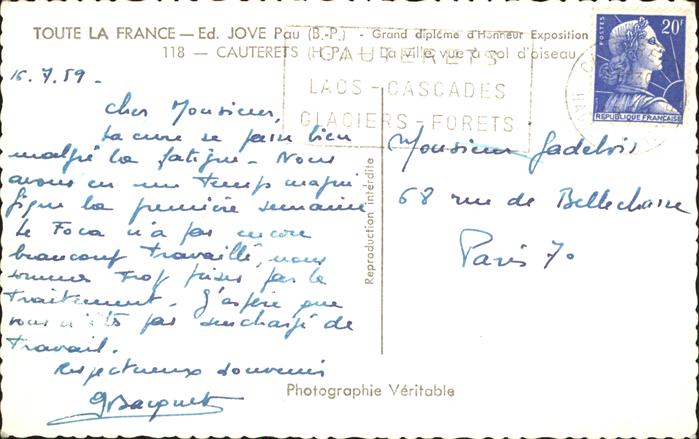 TOUTE LA FRANCE — Ed. JOVE Pau (B.-P.) - Grand diplôme d'Honneur Exposition
118 — CAUTERETS (H.-P.) La ville vue à vol d'oiseau
CAUTERETS
LACS - CASCADES
GLACIERS - FORETS
POSTES
20F
REPUBLIQUE FRANÇAISE
15.7.59.
Cher Monsieur,
La cure se passe bien
malgré la fatigue. Nous
avons eu un temps magni
fique la première semaine
Le Foca n'a pas encore
beaucoup travaillé, nous
sommes trop prises par le
traitement. J'espère que
vous n'êtes pas surchargé de
travail.
Respectueux souvenir
GBacquet
Reproduction interdite
Monsieur Gadebois
68 rue de Bellechasse
Paris 7o
Photographie Véritable